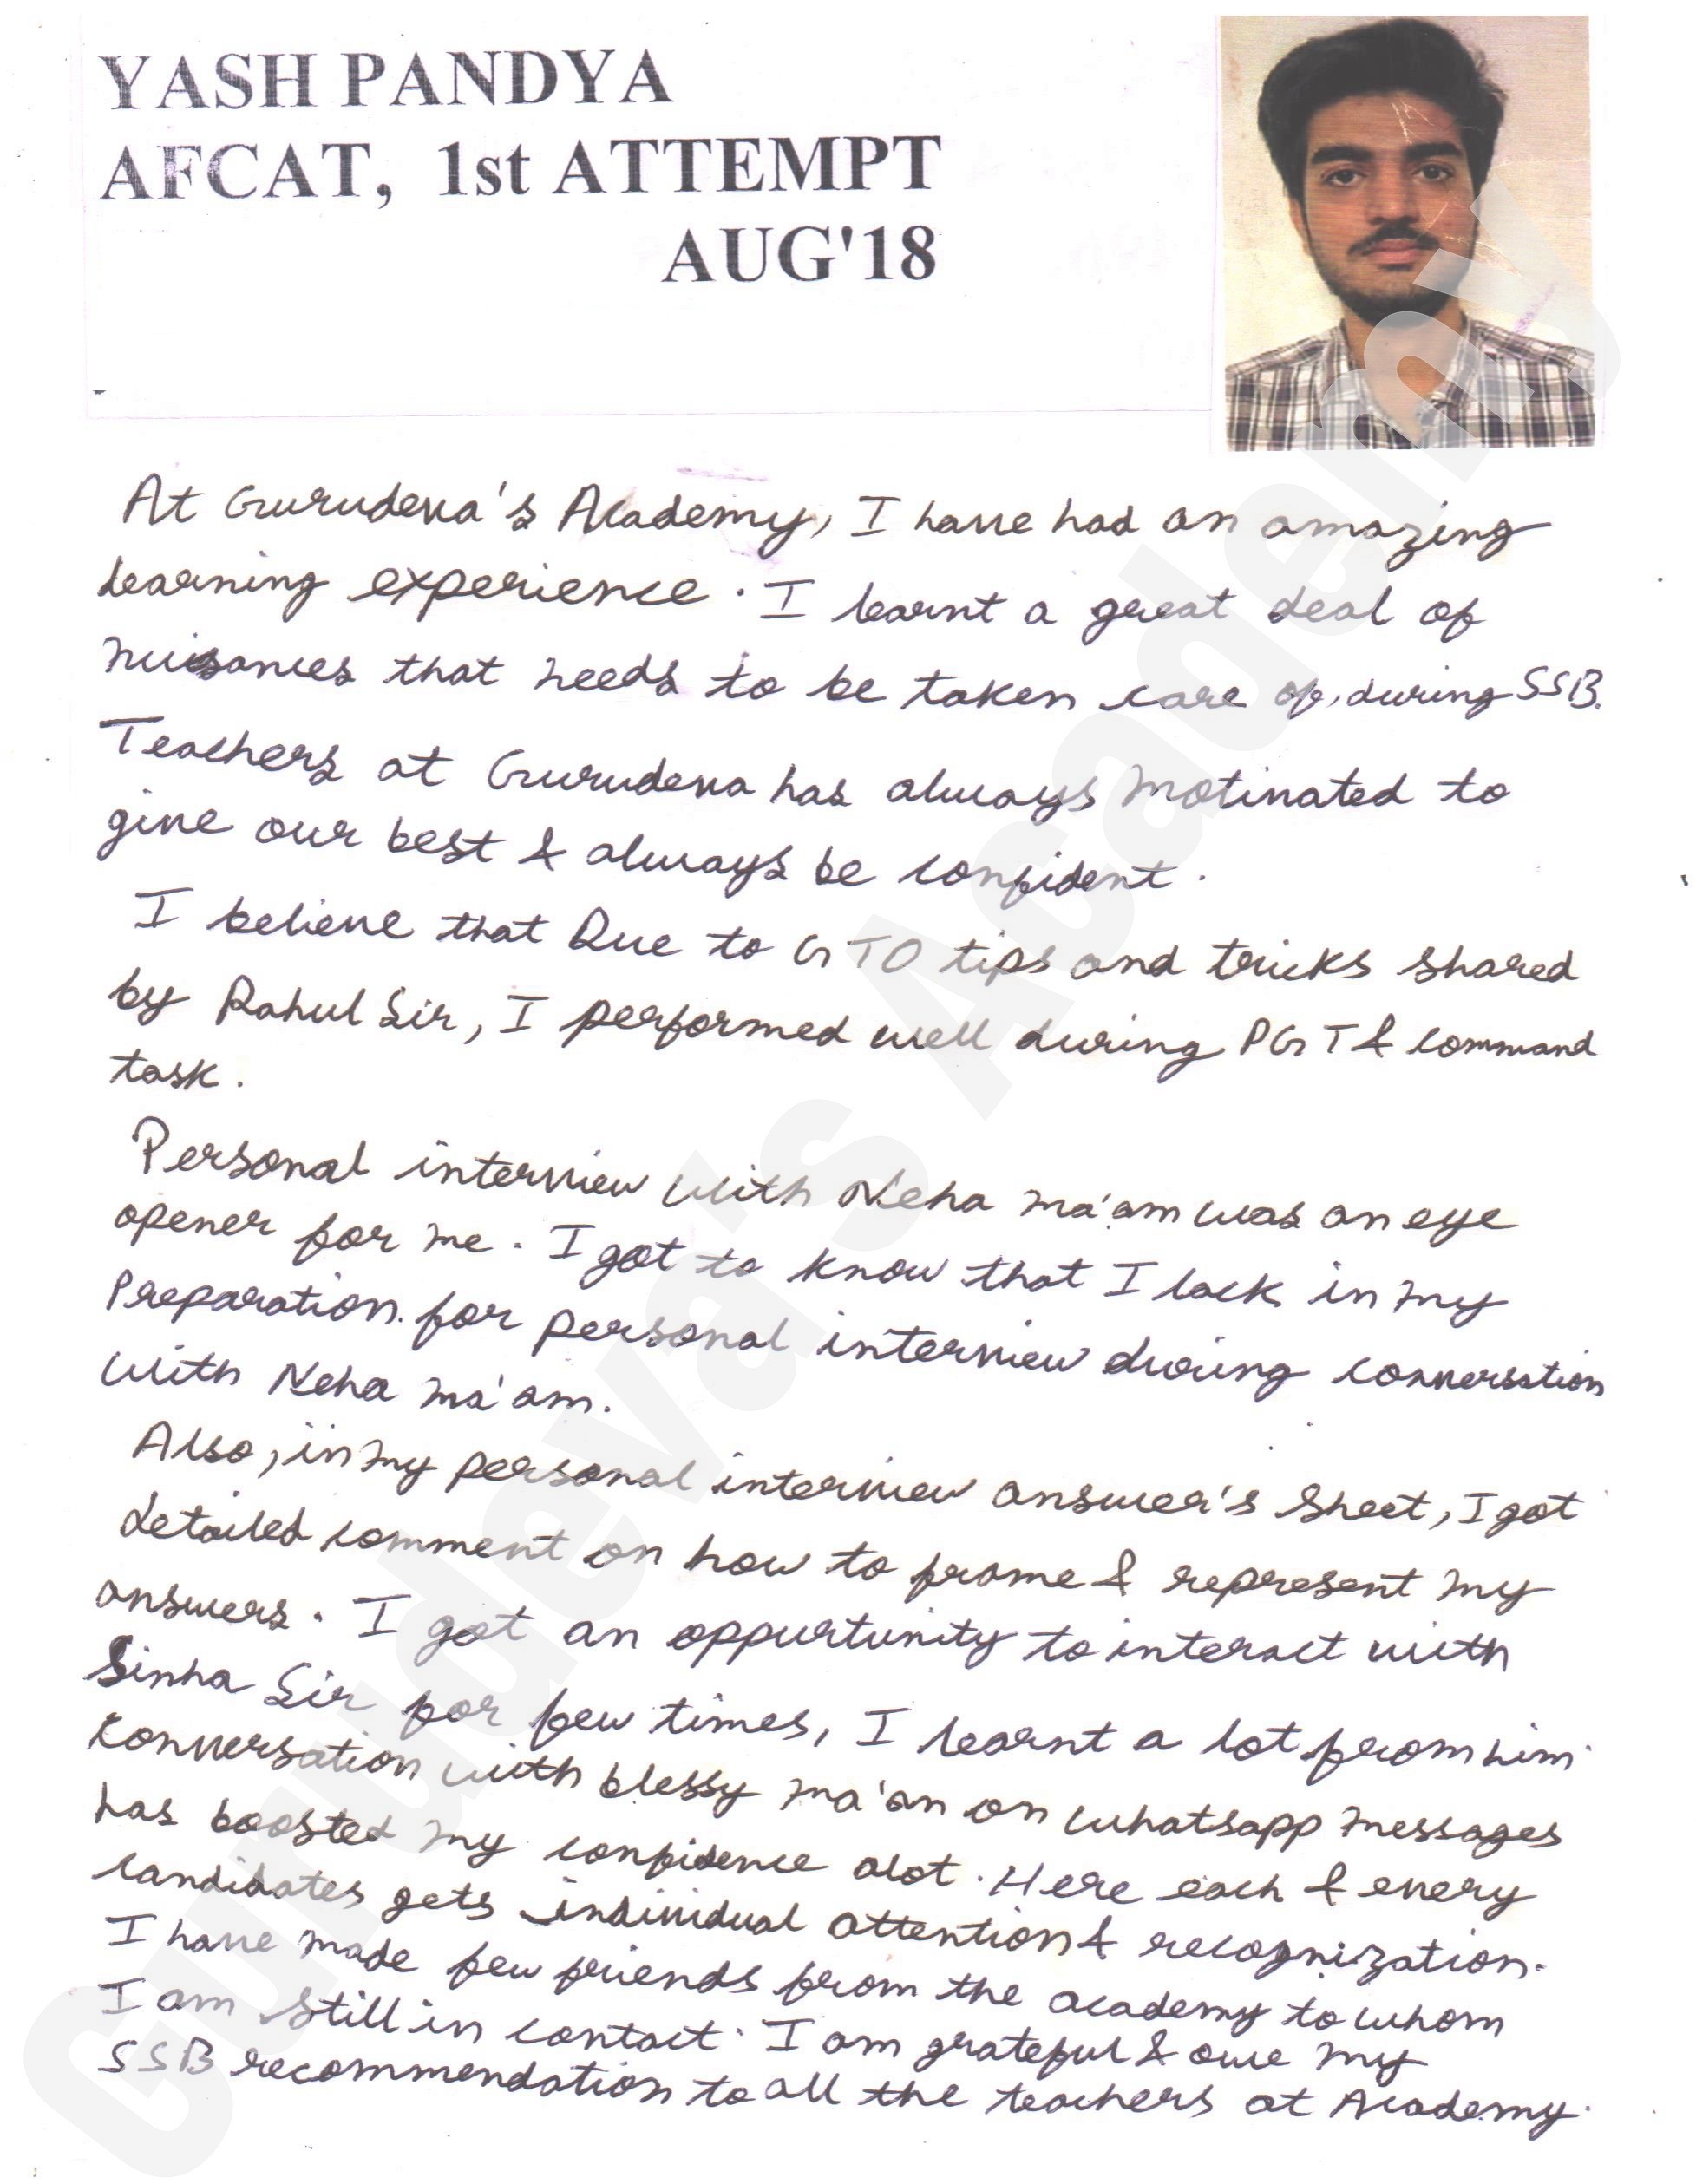 YASH PANDYA
AFCAT, 1st ATTEMPT
AUG'18
At Gurudeva's Academy, I have had an amazing
learning experience. I learnt a great deal of
nuisances that needs to be taken care of, during SSB.
Teachers at Gurudeva has always motivated to
give our best & always be confident.
I believe that Due to GTO tips and tricks shared
by Rahul Sir, I performed well during PGT & command
task.
Personal interview with Neha ma'am was an eye
opener for me. I got to know that I lack in my
Preparation for personal interview during conversation
with Neha ma'am.
Also, in my personal interview answer's sheet, I got
detailed comment on how to frame & represent my
answers. I got an oppurtunity to interact with
Sinha Sir for few times, I learnt a lot from him.
Conversation with blessy ma'an on whatsapp messages
has boosted my confidence alot. Here each & every
candidates gets individual attention & recognization.
I have made few friends from the academy to whom
I am still in contact. I am grateful & owe my
SSB recommendation to all the teachers at Academy.
Gurudeva's Academy